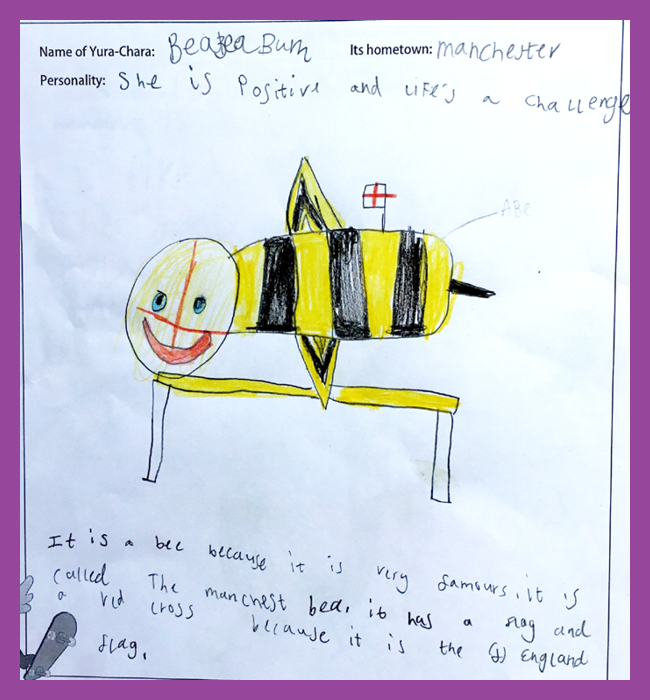 Name of Yura-Chara: BeaBea Bum Its hometown: manchester
Personality: She is Positive and Life's a challenge
It is a bee because it is very famours. it is
called The manchest bea. it has a flag and
a red cross because it is the England
flag.